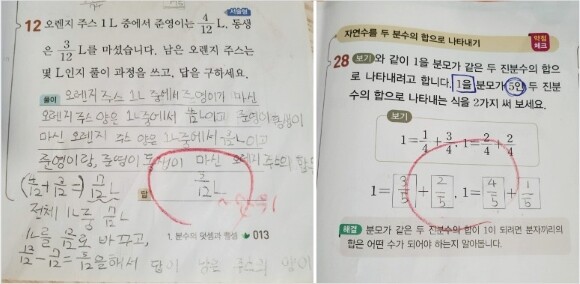 서술형
12 오렌지 주스 1 L 중에서 준영이는 4/12 L, 동생
은 3/12 L를 마셨습니다. 남은 오렌지 주스는
몇 L인지 풀이 과정을 쓰고, 답을 구하세요.
풀이 오렌지 주스 1L 중에서 준영이가 마신
오렌지 주스 양은 1L중에서 이고 준영이 동생이
마신 오렌지 주스 양은 1L중에서 이고
준영이랑, 준영이 동생이 마신 오렌지 주스의 합
(4/12+3/12=) 7/12 L
답 5/12 L
전체 1L 중 7/12 L
1L를 12/12로 바꾸고,
12/12-7/12=5/12 을해서 답이 남은 주스의 양이
1. 분수의 덧셈과 뺄셈 013
자연수를 두 분수의 합으로 나타내기
약점 체크
28 보기와 같이 1을 분모가 같은 두 진분수의 합으
로 나타내려고 합니다. 1을 분모가 5인 두 진분
수의 합으로 나타내는 식을 2가지 써 보세요.
보기
1=1/4+3/4, 1=2/4+2/4
1=3/5+2/5, 1=4/5+1/5
해결 분모가 같은 두 진분수의 합이 1이 되려면 분자끼리의
합은 어떤 수가 되어야 하는지 알아봅니다.